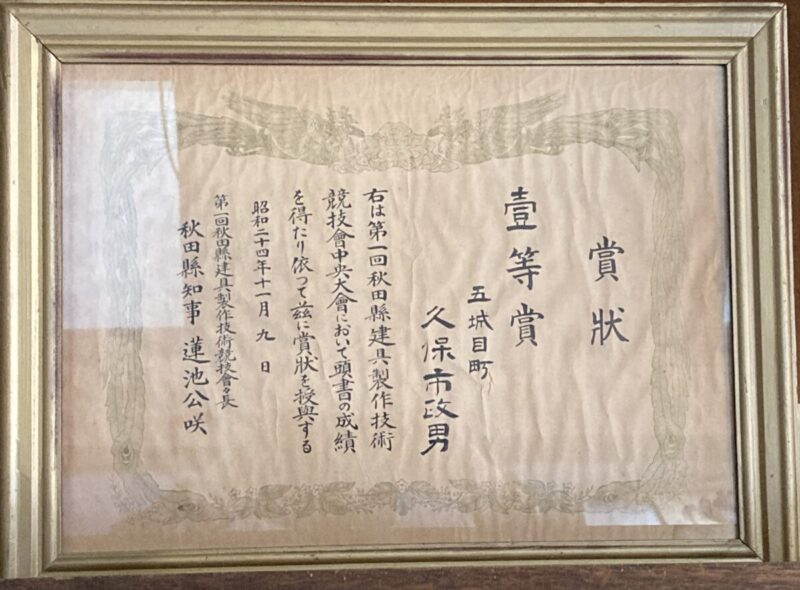 賞狀
壹等賞
五城目町
久保市政男
右は第一回秋田縣建具製作技術
競技會中央大會において頭書の成績
を得たり依つて茲に賞狀を授與する
昭和二十四年十一月九日
第一回秋田縣建具製作技術競技會々長
秋田縣知事 蓮池公咲